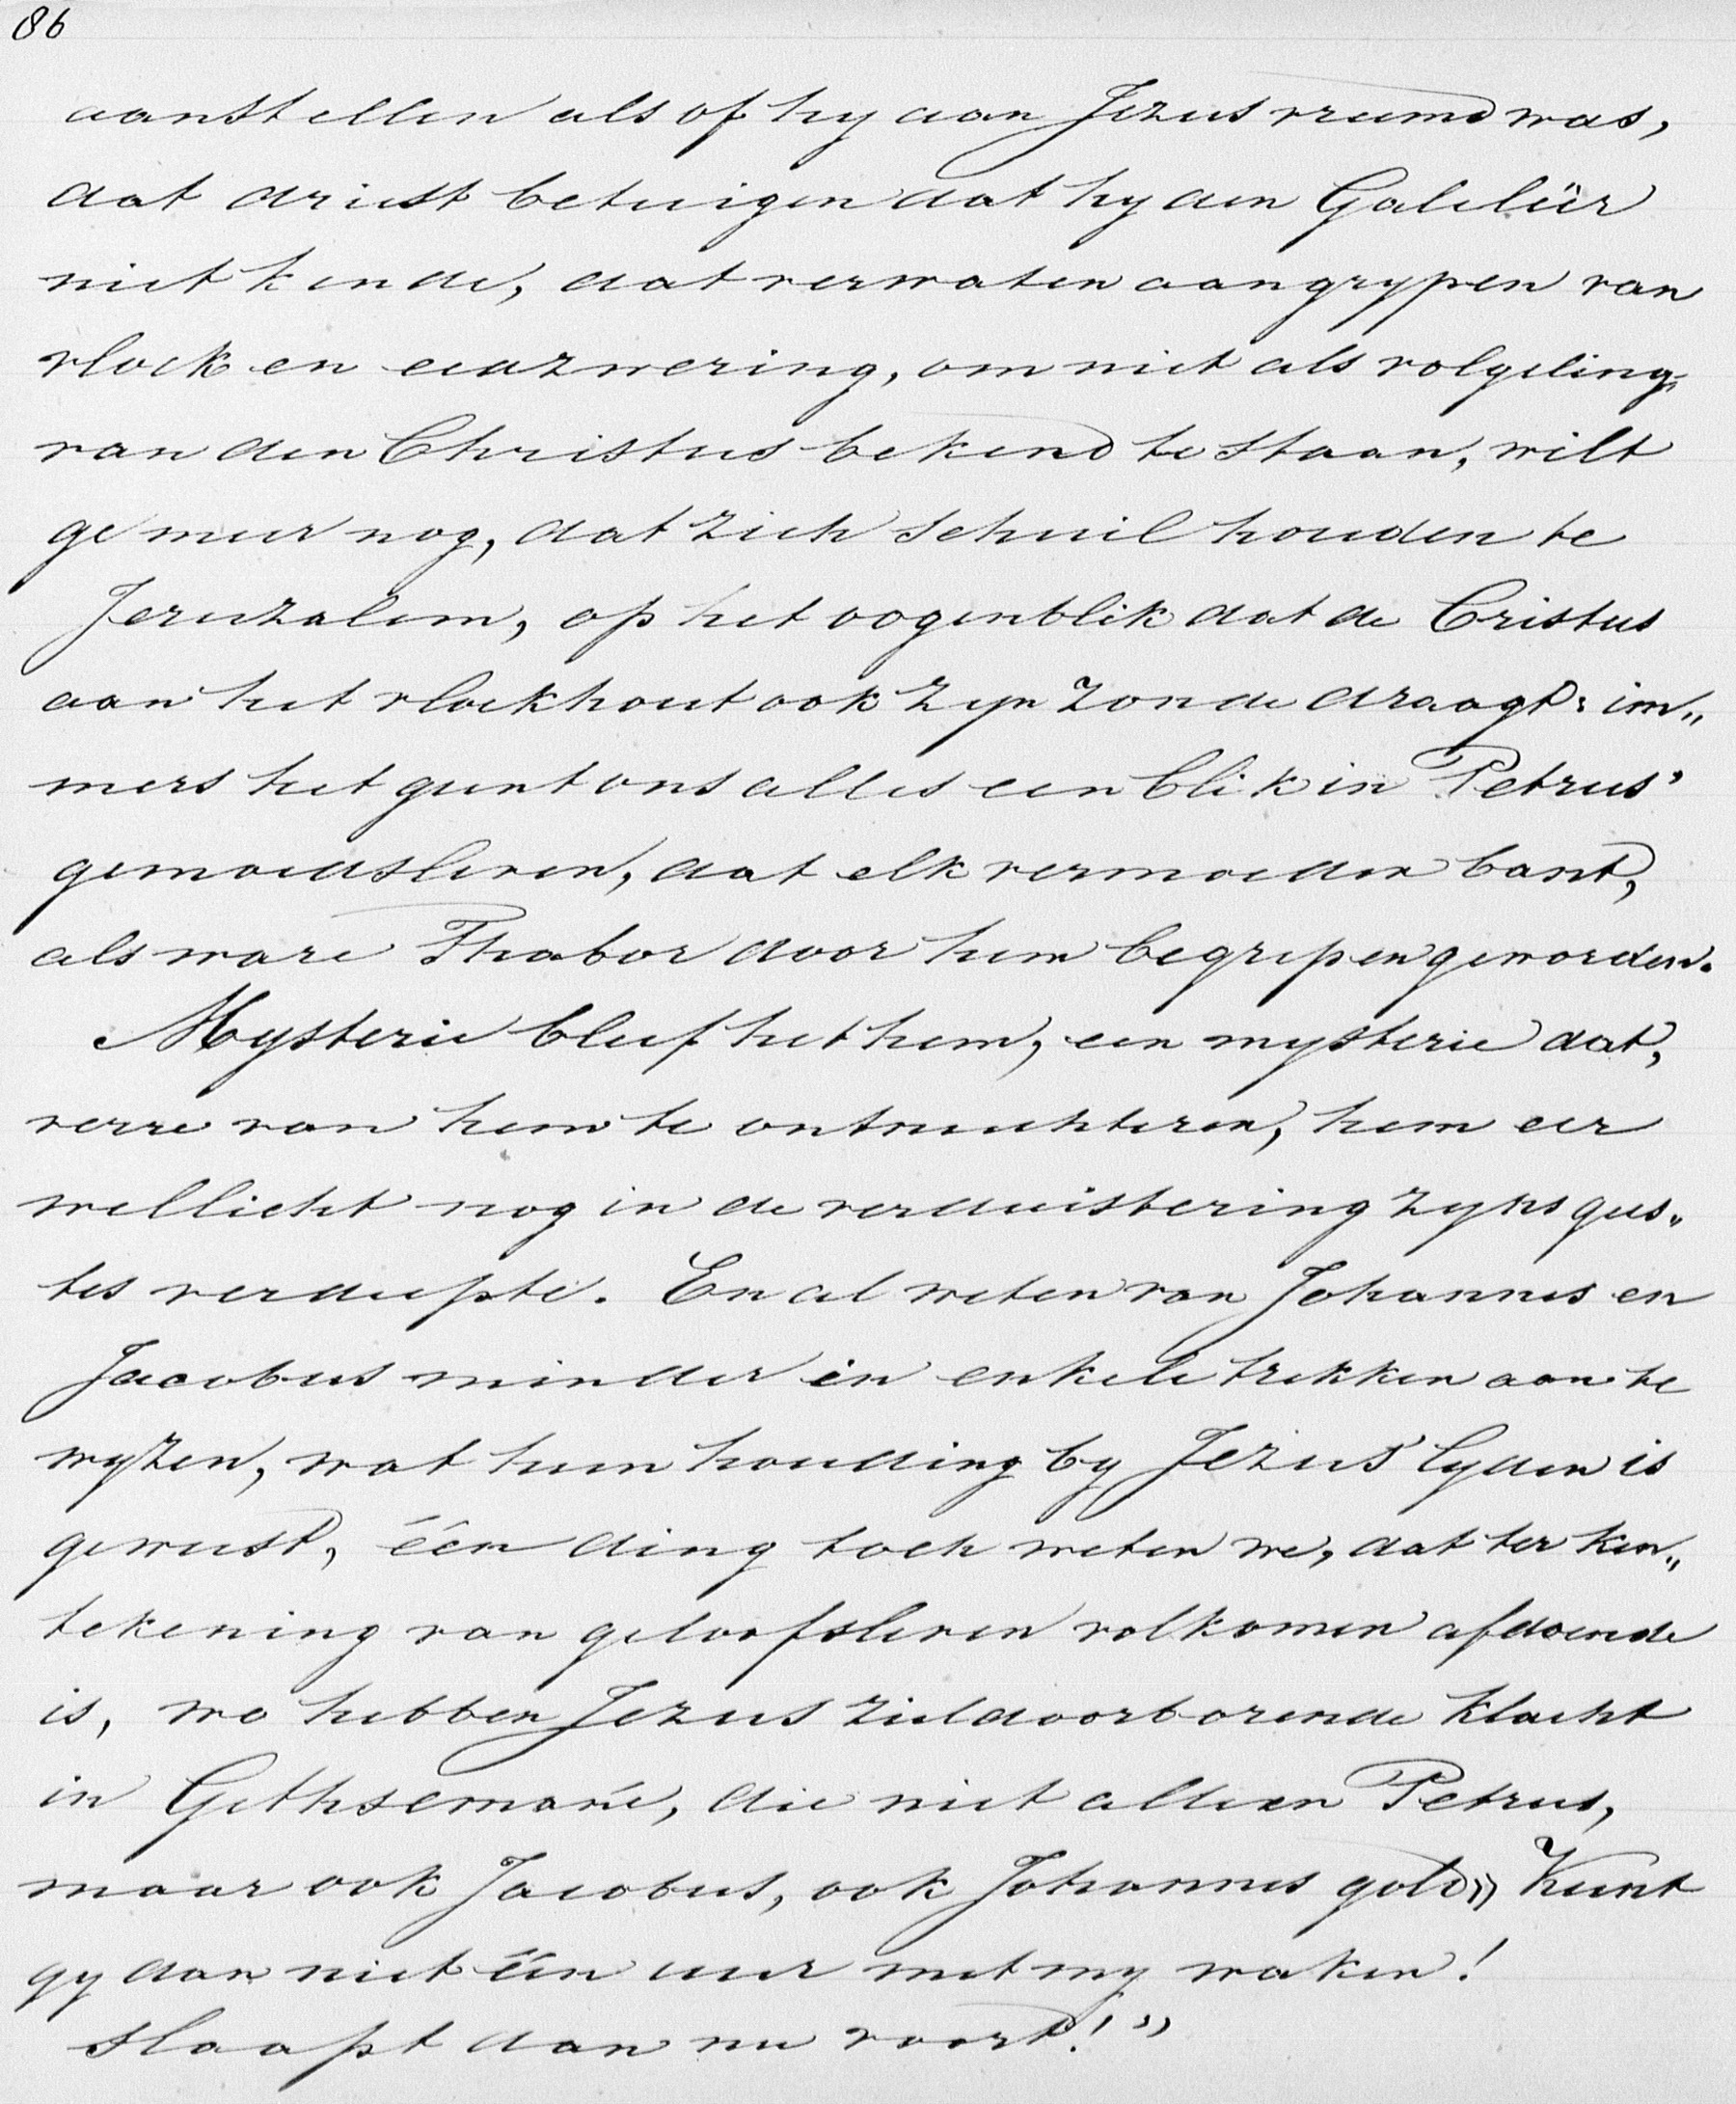 86
aanstellen als of hy aan Jezus vreemd was,
dat driest betuigen dat hy den Galileër
niet kende, dat verwaten aangrypen van
vloek en eedzwering, om niet als volgeling,
van den Christus bekend te staan, wilt
ge meer nog, dat zich schuil houden te
Jeruzalem, op het oogenblik dat de Cristus
aan het vloekhout ook zyn zonde draagt: im„
mers het gunt ons alles een blik in Petrus'
gemoedsleven, dat elk vermoeden bant,
als ware Thabor door hem begrepen geworden.
Mysterie bleef het hem, een mysterie dat,
verre van hem te ontnuchteren, hem eer
wellicht nog in de verduistering zyns gees„
tes verdiepte. En al weten van Johannes en
Jacobus minder in enkele trekken aan te
wyzen, wat hun houding by Jezus' lyden is
geweest, één ding toch weten we, dat ter ken„
tekening van geloofsleven volkomen afdoende
is, we hebben Jezus zieldoorborende klacht
in Gethsemané, die niet alleen Petrus,
maar ook Jacobus, ook Johannes gold „ Kunt
gy dan niet één uur met my waken!
slaapt dan nu voort!"